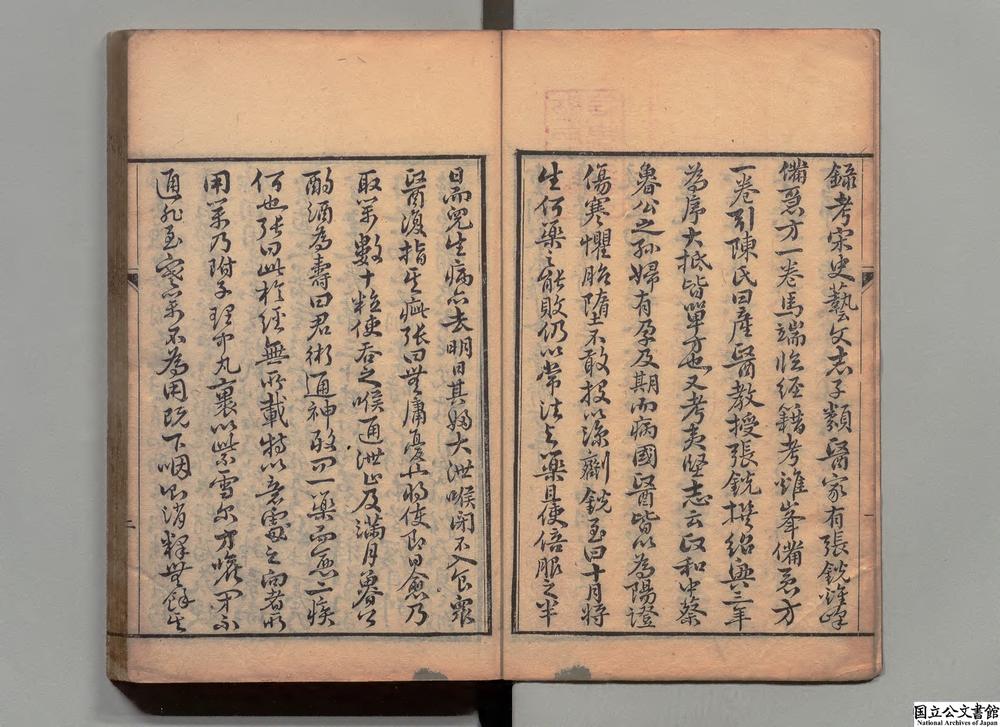 錄考宋史藝文志子類醫家有張銳雞峰
備急方一卷馬端臨經籍考雞峯備急方
一卷引陳氏曰產醫教授張銳撰紹興三年
為序大抵皆單方也又考夷堅志云政和中蔡
魯公之孫婦有孕及期而病國醫皆以為陽證
傷寒懼胎墮不敢投以涼劑銳至曰十月將
生何藥之能敗仍以常法与藥且使倍服之半
日而兒生病亦去明日其婦大泄喉閉不入食衆
醫復指其疵張曰無庸憂也將使即日愈乃
取藥數十粒使吞之喉通泄止及滿月魯公
酌酒為壽曰君術通神敢問一藥而愈二疾
何也張曰此於經無所載特以意處之向者所
用藥乃附子理中丸裹以紫雪尔方喉閉不
通非至寒藥不為用既下咽則消釋無餘其
二
国立公文書館
National Archives of Japan